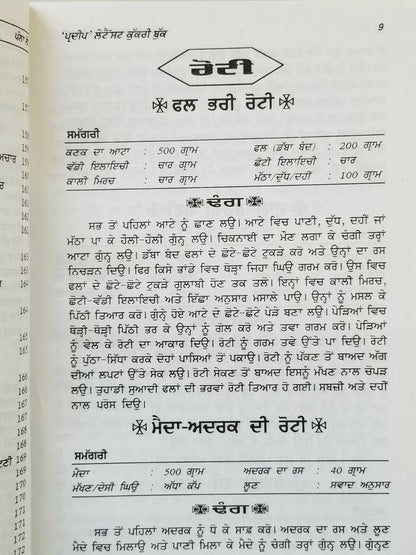 'ਪ੍ਰਦੀਪ' ਲੇਟੈਸਟ ਕੁੱਕਰੀ ਬੁੱਕ 9
ਰੋਟੀ
ਫਲ ਭਰੀ ਰੋਟੀ
ਸਮੱਗਰੀ
ਕਣਕ ਦਾ ਆਟਾ : 500 ਗ੍ਰਾਮ ਫਲ (ਡੱਬਾ ਬੰਦ) : 200 ਗ੍ਰਾਮ
ਵੱਡੀ ਇਲਾਇਚੀ : ਚਾਰ ਗ੍ਰਾਮ ਛੋਟੀ ਇਲਾਇਚੀ : ਚਾਰ
ਕਾਲੀ ਮਿਰਚ : ਚਾਰ ਗ੍ਰਾਮ ਮੱਠਾ/ਦੁੱਧ/ਦਹੀਂ : 100 ਗ੍ਰਾਮ
ਢੰਗ
ਸਭ ਤੋਂ ਪਹਿਲਾਂ ਆਟੇ ਨੂੰ ਛਾਣ ਲਉ। ਆਟੇ ਵਿਚ ਪਾਣੀ, ਦੁੱਧ, ਦਹੀਂ ਜਾਂ
ਮੱਠਾ ਪਾ ਕੇ ਹੌਲੀ-ਹੌਲੀ ਗੁੰਨ੍ਹ ਲਉ। ਚਿਕਨਾਈ ਦਾ ਮੌਣ ਲਗਾ ਕੇ ਚੰਗੀ ਤਰ੍ਹਾਂ
ਆਟਾ ਗੁੰਨ੍ਹ ਲਉ। ਡੱਬਾ ਬੰਦ ਫਲਾਂ ਦੇ ਛੋਟੇ-ਛੋਟੇ ਟੁਕੜੇ ਕਰੋ ਅਤੇ ਉਨ੍ਹਾਂ ਦਾ ਰਸ
ਨਿਚੜਨ ਦਿਉ। ਫਿਰ ਕਿਸੇ ਭਾਂਡੇ ਵਿਚ ਥੋੜ੍ਹਾ ਜਿਹਾ ਘਿਉ ਗਰਮ ਕਰੋ। ਉਸ ਵਿਚ
ਫਲਾਂ ਦੇ ਛੋਟੇ-ਛੋਟੇ ਟੁਕੜੇ ਗੁਲਾਬੀ ਹੋਣ ਤਕ ਤਲੋ। ਇਨ੍ਹਾਂ ਵਿਚ ਕਾਲੀ ਮਿਰਚ,
ਛੋਟੀ-ਵੱਡੀ ਇਲਾਇਚੀ ਅਤੇ ਇੱਛਾ ਅਨੁਸਾਰ ਮਸਾਲੇ ਪਾਉ। ਉਨ੍ਹਾਂ ਨੂੰ ਮਸਲ ਕੇ
ਪਿੱਠੀ ਤਿਆਰ ਕਰੋ। ਗੁੰਨ੍ਹੇ ਹੋਏ ਆਟੇ ਦੇ ਛੋਟੇ-ਛੋਟੇ ਪੇੜੇ ਬਣਾ ਲਉ। ਪੇੜਿਆਂ ਵਿਚ
ਥੋੜ੍ਹੀ-ਥੋੜ੍ਹੀ ਪਿੱਠੀ ਭਰ ਕੇ ਉਨ੍ਹਾਂ ਨੂੰ ਗੋਲ ਕਰੋ ਅਤੇ ਤਵਾ ਗਰਮ ਕਰੋ। ਪੇੜਿਆਂ
ਨੂੰ ਵੇਲ ਕੇ ਰੋਟੀ ਦਾ ਆਕਾਰ ਦਿਉ। ਰੋਟੀ ਨੂੰ ਗਰਮ ਤਵੇ ਉੱਤੇ ਪਾ ਦਿਉ। ਰੋਟੀ
ਨੂੰ ਪੁੱਠਾ-ਸਿੱਧਾ ਕਰਕੇ ਦੋਹਾਂ ਪਾਸਿਆਂ ਤੋਂ ਪਕਾਉ। ਰੋਟੀ ਨੂੰ ਪੱਕਣ ਤੋਂ ਬਾਅਦ ਅੱਗ
ਦੀਆਂ ਲਪਟਾਂ ਉੱਤੇ ਸੇਕ ਲਉ। ਰੋਟੀ ਸੇਕਣ ਤੋਂ ਬਾਅਦ ਇਸਨੂੰ ਮੱਖਣ ਨਾਲ ਚੋਪੜ
ਲਉ। ਤੁਹਾਡੀ ਸੁਆਦੀ ਫਲਾਂ ਦੀ ਭਰਵਾਂ ਰੋਟੀ ਤਿਆਰ ਹੋ ਗਈ। ਸਬਜ਼ੀ ਅਤੇ ਦਹੀਂ
ਨਾਲ ਪਰੋਸ ਦਿਉ।
ਮੈਦਾ-ਅਦਰਕ ਦੀ ਰੋਟੀ
ਸਮੱਗਰੀ
ਮੈਦਾ : 500 ਗ੍ਰਾਮ ਅਦਰਕ ਦਾ ਰਸ : 40 ਗ੍ਰਾਮ
ਮੱਖਣ/ਦੇਸੀ ਘਿਉ : ਅੱਧਾ ਕੱਪ ਲੂਣ : ਸਵਾਦ ਅਨੁਸਾਰ
ਢੰਗ
ਸਭ ਤੋਂ ਪਹਿਲਾਂ ਅਦਰਕ ਨੂੰ ਧੋ ਕੇ ਸਾਫ਼ ਕਰੋ। ਅਦਰਕ ਦਾ ਰਸ ਅਤੇ ਲੂਣ
ਮੈਦੇ ਵਿਚ ਮਿਲਾਉ ਅਤੇ ਪਾਣੀ ਮਿਲਾ ਕੇ ਮੈਦੇ ਨੂੰ ਚੰਗੀ ਤਰ੍ਹਾਂ ਗੁੰਨ੍ਹ ਲਉ। ਗੁੰਨ੍ਹਣ